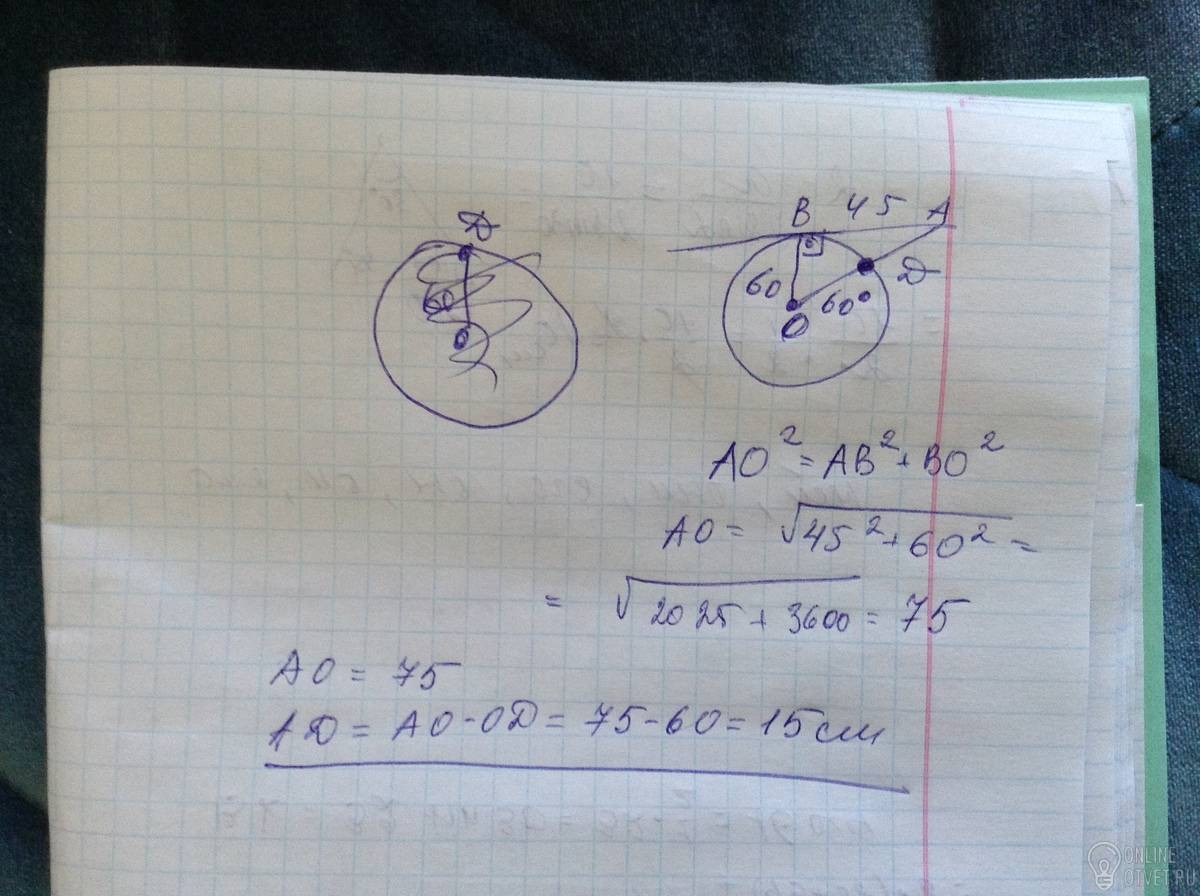 D
60
O
B 45 A
60
60°
D
O
AO² = AB² + BO²
AO = √45² + 60² =
= √2025 + 3600 = 75
AO = 75
AD = AO - OD = 75 - 60 = 15 см
ONLINE
OTVET.RU